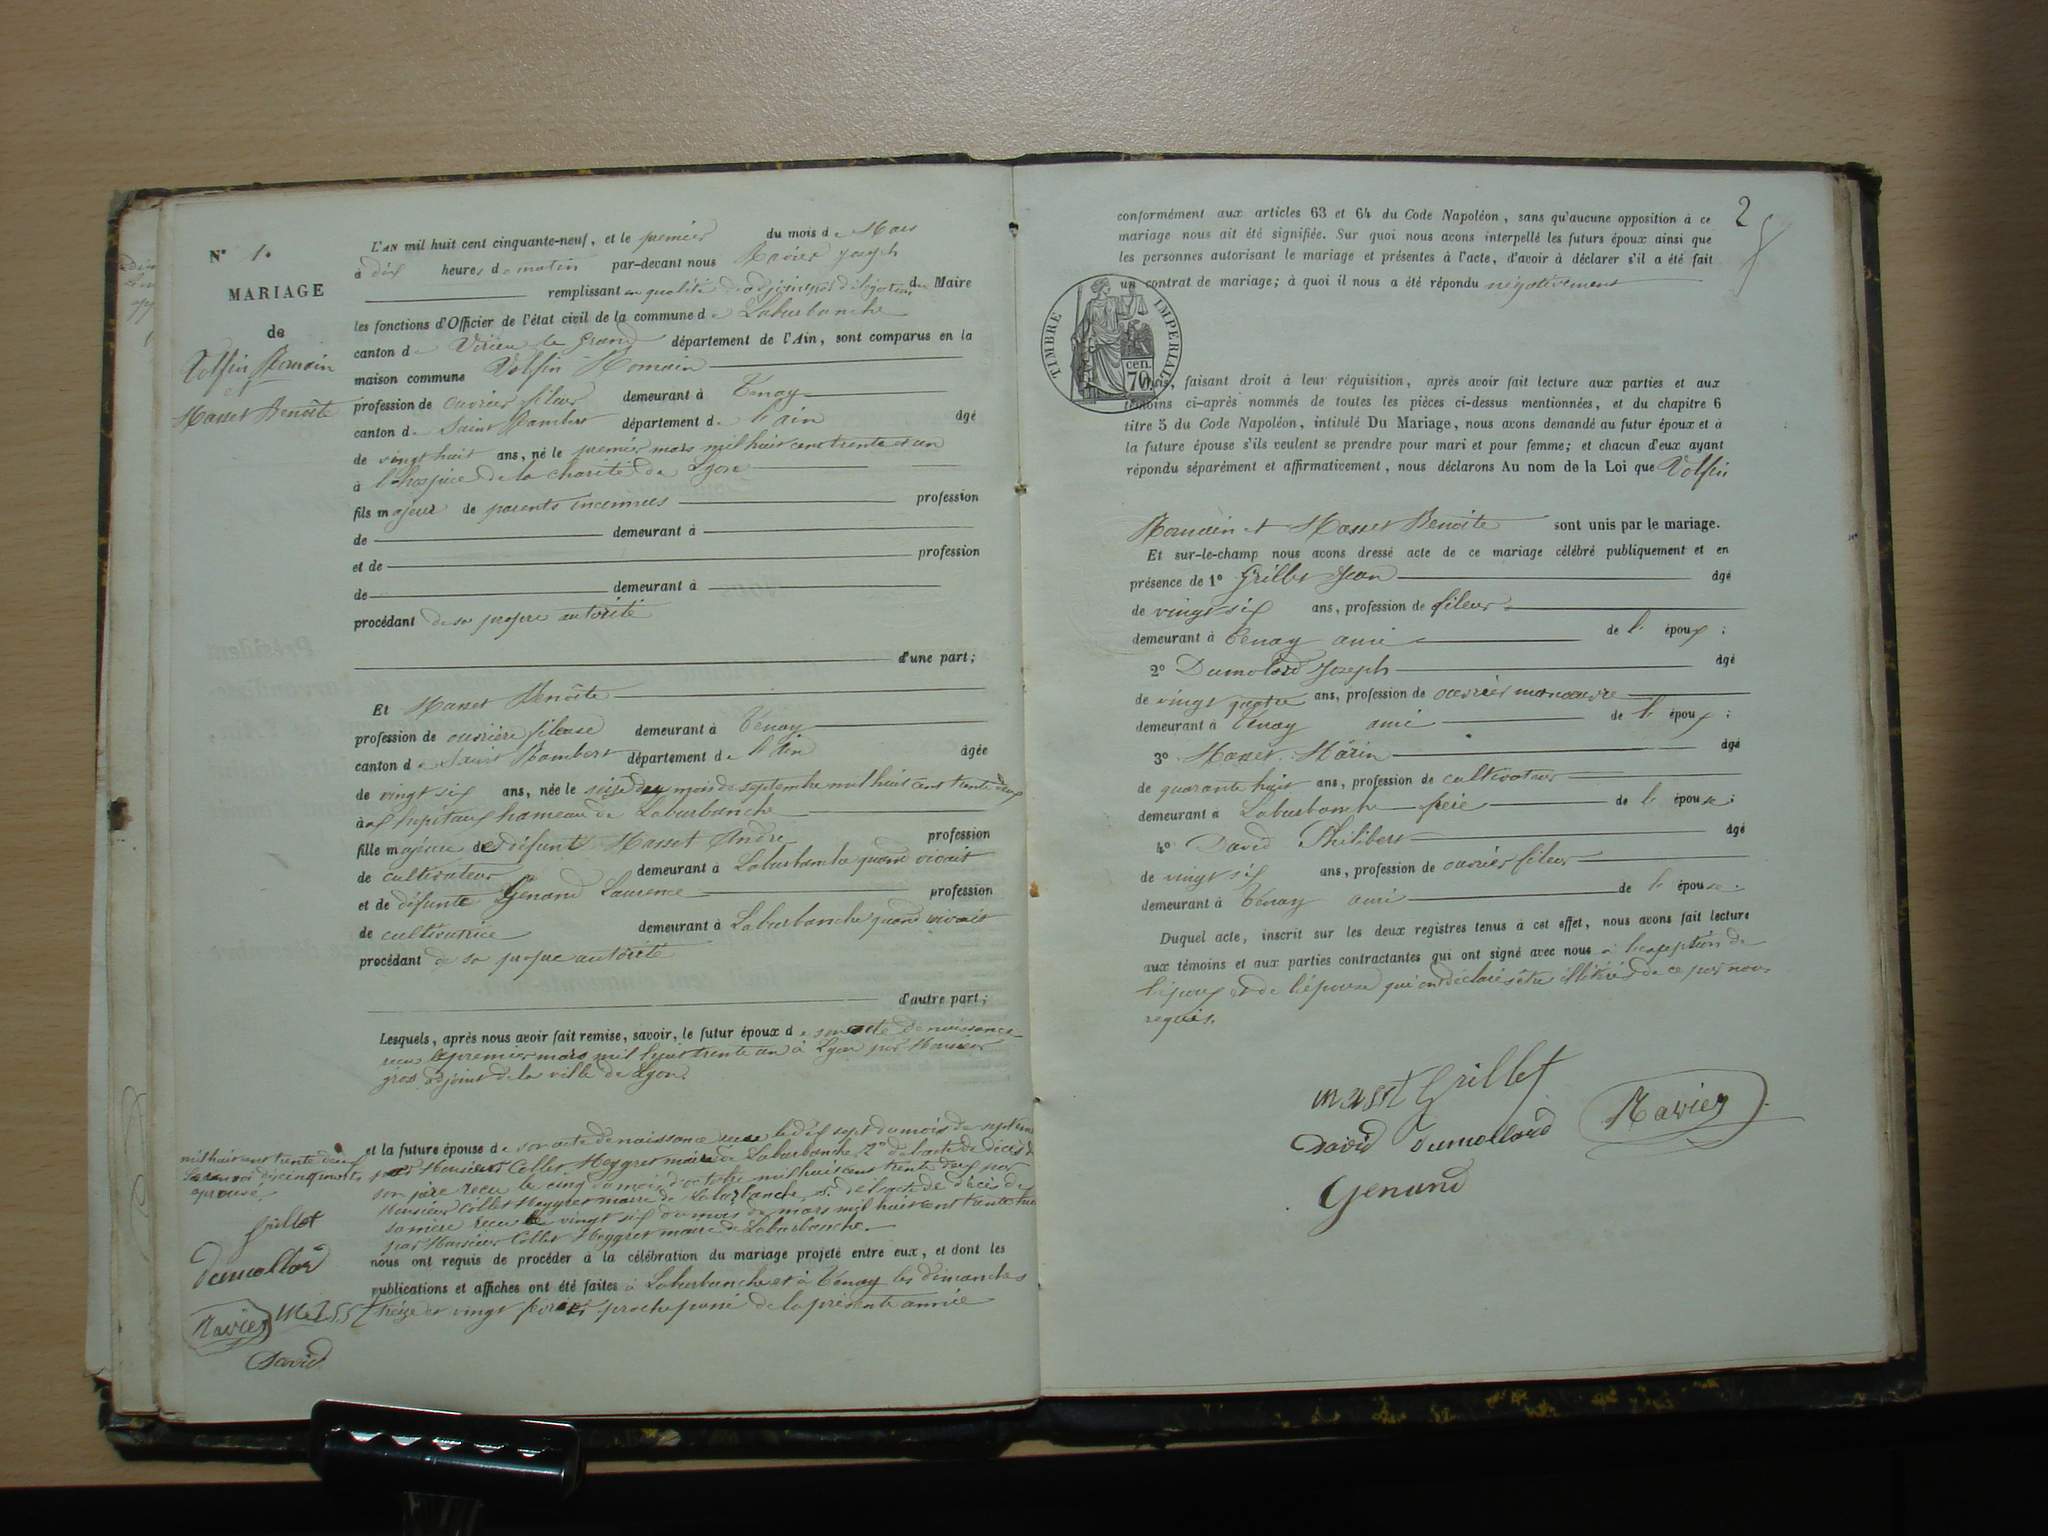 N° 1.
MARIAGE
de
Volfin Romain
et
Masset Benoîte
L'AN mil huit cent cinquante-neuf, et le premier du mois de Mars
à dix heures du matin par-devant nous Ravier Joseph
remplissant en qualité d'adjoint par délégation du Maire
les fonctions d'Officier de l'état civil de la commune de Laburbanche
canton de Virieu le Grand département de l'Ain, sont comparus en la
maison commune Volfin Romain
profession de ouvrier fileur demeurant à Tenay
canton de Saint Rambert département de l'ain âgé
de vingt huit ans, né le premier mars mil huit cent trente et un
à l'hospice de la charité de Lyon
fils majeur de parents inconnus profession
de demeurant à
et de profession
de demeurant à
procédant de sa propre autorité
d'une part;
Et Masset Benoîte
profession de ouvrière fileuse demeurant à Tenay
canton de Saint Rambert département de l'Ain âgée
de vingt six ans, née le seize du mois de septembre mil huit cent trente deux
aux hôpitaux hameau de Laburbanche
fille majeure de défunt Masset André profession
de cultivateur demeurant à Laburbanche quand vivait
et de défunte Genand Laurence profession
de cultivatrice demeurant à Laburbanche quand vivait
procédant de sa propre autorité
d'autre part;
Lesquels, après nous avoir fait remise, savoir, le futur époux de son acte de naissance
reçu le premier mars mil huit trente un à Lyon par Monsieur
gros adjoint de la ville de Lyon.
et la future épouse de son acte de naissance reçu le dix sept du mois de septembre
par Monsieur Collet Meygret maire de Laburbanche, 2° de l'acte de décès de
son père reçu le cinq du mois d'octobre mil huit cent trente deux par
Monsieur Collet Meygret maire de Laburbanche, 3° de l'acte de décès de
sa mère reçu le vingt six du mois de mars mil huit cent trente
par Monsieur Collet Meygret maire de Laburbanche.
nous ont requis de procéder à la célébration du mariage projeté entre eux, et dont les
publications et affiches ont été faites à Laburbanche et à Tenay les dimanches
treize et vingt février proche passé de la présente année
mil huit cent trente deux
Le renvoi de cinq mots
aprouvé.
Grillet
Dumollard
Ravier Masset
David
2
conformément aux articles 63 et 64 du Code Napoléon, sans qu'aucune opposition à ce
mariage nous ait été signifiée. Sur quoi nous avons interpellé les futurs époux ainsi que
les personnes autorisant le mariage et présentes à l'acte, d'avoir à déclarer s'il a été fait
un contrat de mariage; à quoi il nous a été répondu négativement
TIMBRE IMPERIAL
cen.
70.
faisant droit à leur réquisition, après avoir fait lecture aux parties et aux
témoins ci-après nommés de toutes les pièces ci-dessus mentionnées, et du chapitre 6
titre 5 du Code Napoléon, intitulé Du Mariage, nous avons demandé au futur époux et à
la future épouse s'ils veulent se prendre pour mari et pour femme; et chacun d'eux ayant
répondu séparément et affirmativement, nous déclarons Au nom de la Loi que Volfin
Romain et Masset Benoîte sont unis par le mariage.
Et sur-le-champ nous avons dressé acte de ce mariage célébré publiquement et en
présence de 1° Grillet Jean âgé
de vingt six ans, profession de fileur
demeurant à Tenay ami de l' époux;
2° Dumolard Joseph âgé
de vingt quatre ans, profession de ouvrier manoeuvre
demeurant à Tenay ami de l' époux;
3° Masset Marin âgé
de quarante huit ans, profession de cultivateur
demeurant à Laburbanche frère de l' épouse;
4° David Philibert âgé
de vingt six ans, profession de ouvrier fileur
demeurant à Tenay ami de l' épouse.
Duquel acte, inscrit sur les deux registres tenus à cet effet, nous avons fait lecture
aux témoins et aux parties contractantes qui ont signé avec nous à l'exeption de
l'époux et de l'épouse qui ont déclaré être illitérés de ce par nous
requis.
Masset Grillet
David Dumollard Ravier
Genand